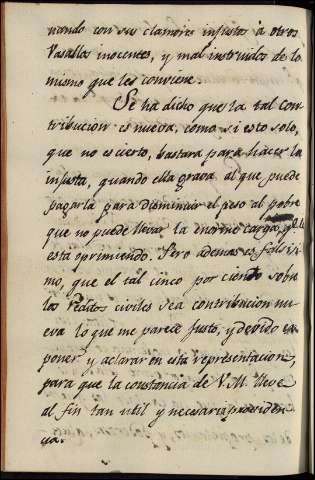 nando con sus clamores injustos à otros
Vasallos inocentes, y mal instruidos de lo
mismo que les conviene.
Se ha dicho que la tal con
tribucion es nueva, como si esto solo,
que no es cierto, bastara para hacer la
injusta, quando ella grava al que puede
pagarla para disminuir el peso al pobre
que no puede llevar la enorme carga, q.e le
esta oprimiendo. Pero ademas es falsisi
mo, que el tal cinco por ciento sobre
los reditos civiles sea contribucion nu
eva lo que me parece justo, y devido ex
poner y aclarar en esta representacion,
para que la constancia de V.M. lleve
al fin tan util y necesaria providen
cia.